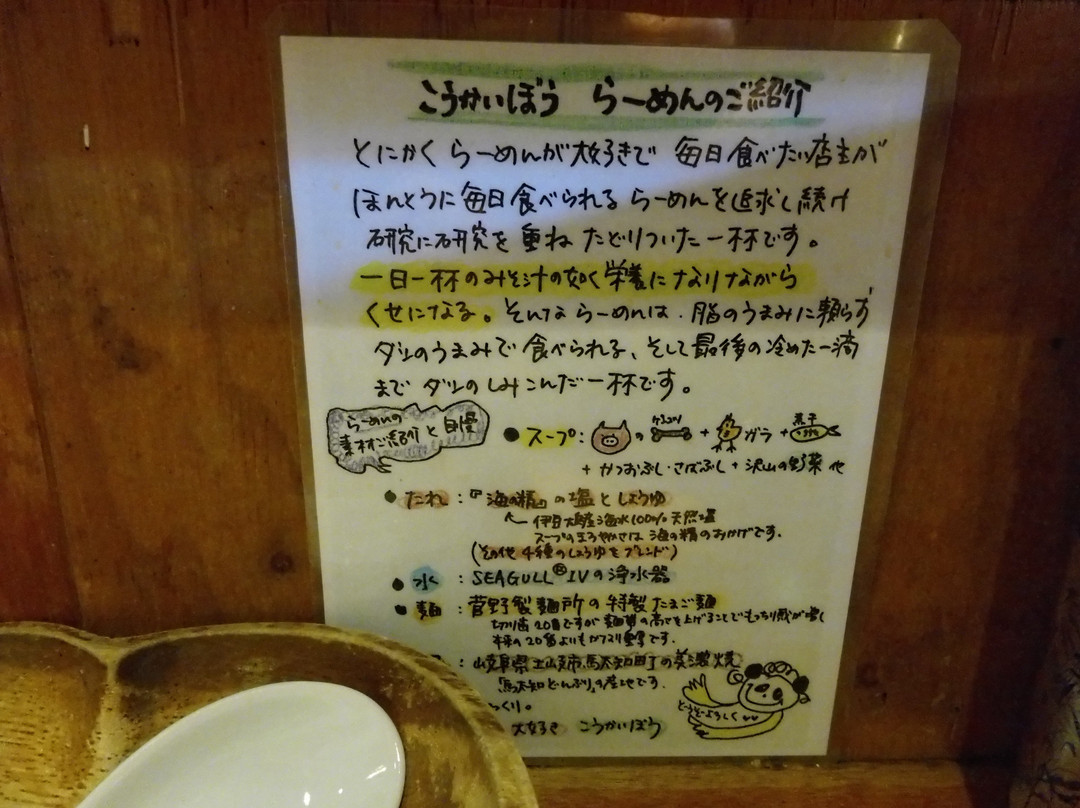 こうかいぼう らーめんのご紹介
とにかく らーめんが大好きで 毎日食べたい店主が
ほんとうに毎日食べられる らーめんを追求し続け
研究に研究を重ね たどりついた一杯です。
一日一杯のみそ汁の如く栄養になりながら
くせになる。そんな らーめんは、脂のうまみに頼らず
ダシのうまみで食べられる、そして最後の冷めた一滴
まで ダシのしみこんだ一杯です。
らーめんの
素材ご紹介と自慢
●スープ: の げんこつ + ガラ + 煮干
+ かつおぶし・さばぶし + 沢山の野菜 他
●たれ:『海の精』の塩としょうゆ
伊豆大島産海水100%天然塩
スープのまろやかさは 海の精のおかげです。
(その他 4種のしょうゆをブレンド)
●水:SEAGULL®IVの浄水器
●麺:菅野製麺所の特製たまご麺
切り歯20番ですが 麺帯の高さを上げることでもっちり感が増し
本来の20番よりも です。
:岐阜県土岐市馬太知町の美濃焼
「馬太知どんぶり」の産地です。
っくり。
大好き こうかいぼう
どうぞよろしく